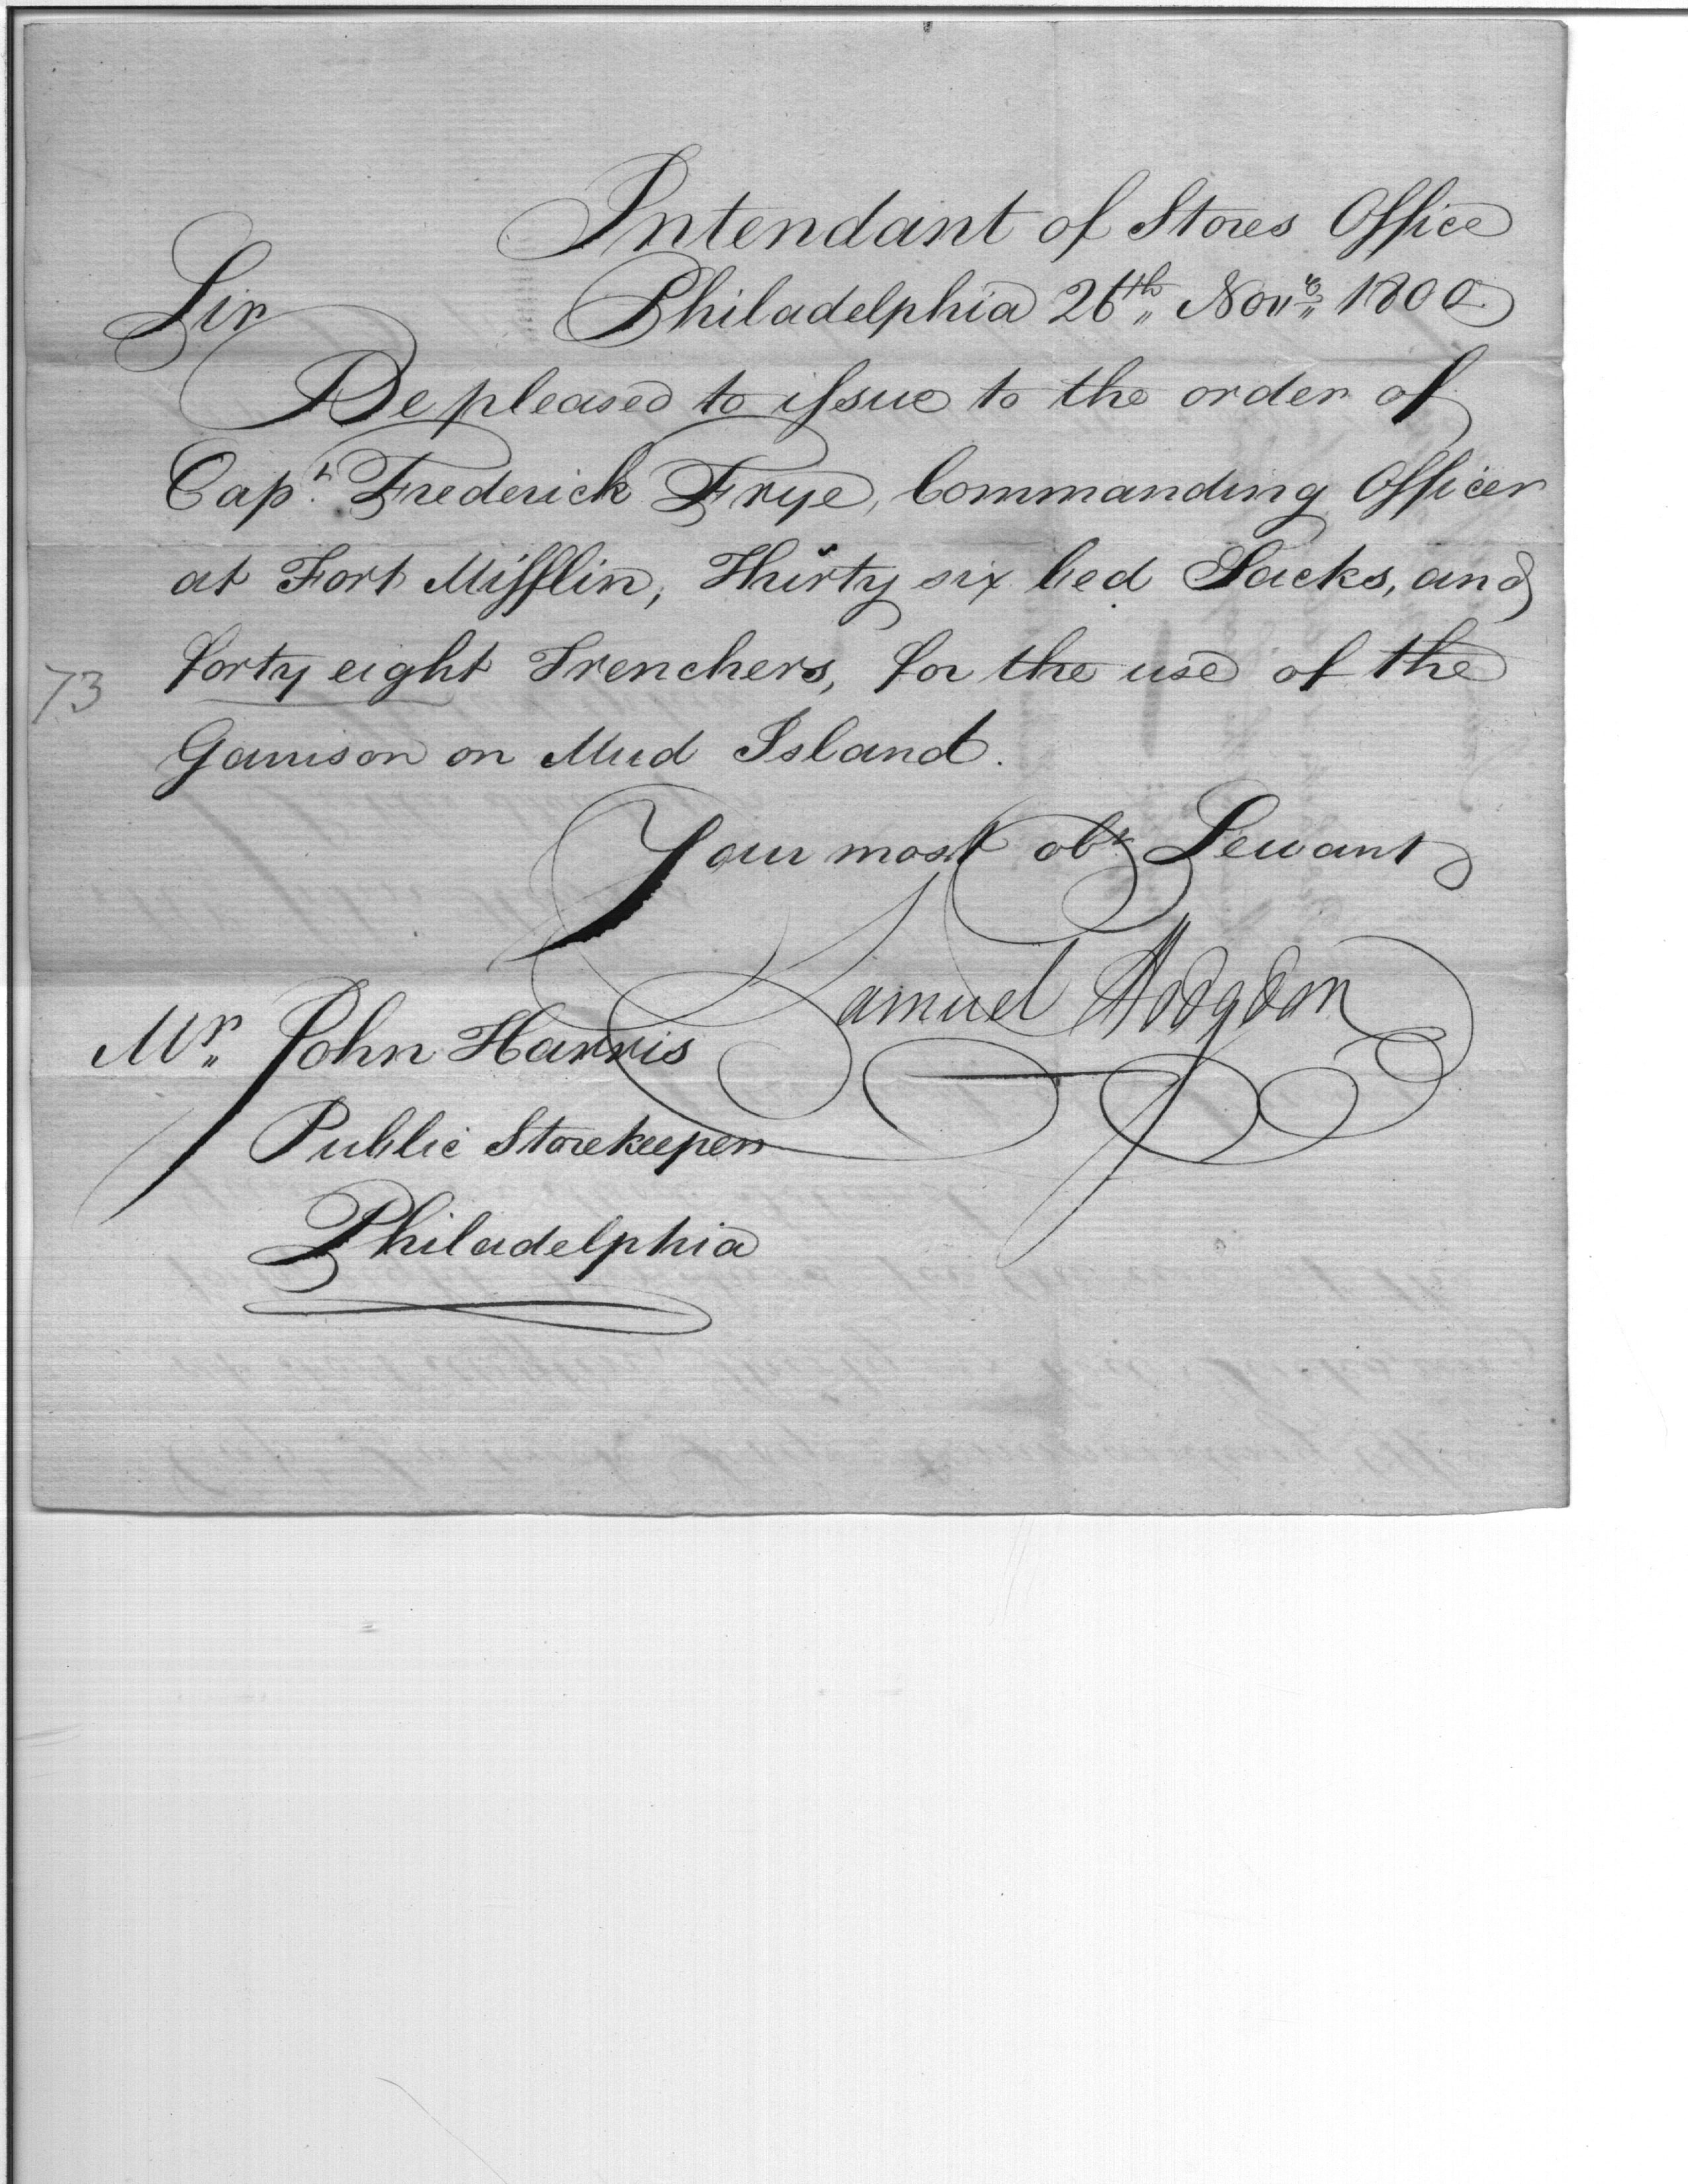 Intendant of Stores Office
Sir
Philadelphia 26th Novr 1800
Be pleased to issue to the order of
Capt. Frederick Frye, Commanding Officer
at Fort Mifflin, Thirty six bed Sacks, and
73
forty eight Trenchers, for the use of the
Garrison on Mud Island.
Your most obt Servant
Samuel Hodgdon
Mr John Harris
Public Storekeeper
Philadelphia